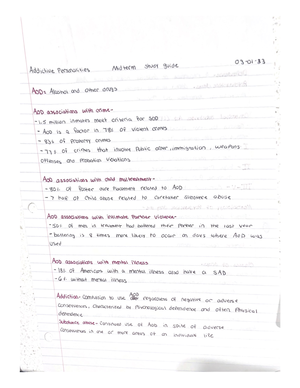 Addictive Personalities Midterm Study Guide 03-01-23
AOD: Alcohol and other drugs
AOD associations with crime-
-1.5 million inmates meet criteria for SOD
- AOD is a factor in 78% of violent crimes
- 83% of property crimes
- 77% of crimes that involve Public order, immigration, weapons
offenses, and Probation Violations
AOD associations with child maltreatment-
- 80% of foster care Placements related to AOD
- 7 out of Child abuse related to caretaker substance abuse
AOD associations with Intimate Partner Violence-
- 50% of men in treatment had battered their Partner in the last year
- battering is 8 times more likely to occur on days where AOD was
used
AOD associations with mental illness
- 18% of Americans with a mental illness also have a SAD
- 6% without mental illness
Addiction- Compulsion to use AOD regardless of negative or adverse
consequences, characterized by Psychological dependence and often Physical
dependence
Substance abuse- Continued use of AOD in spite of adverse
consequences in one or more areas of an individual life